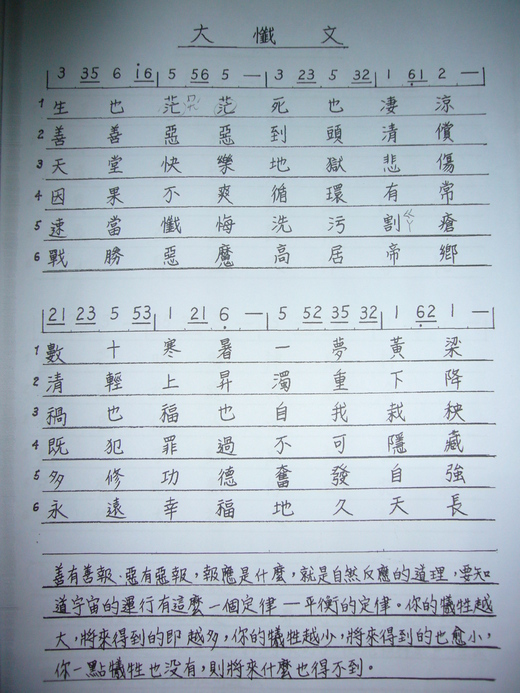 大懺文
3 35 6 i6 | 5 56 5 — | 3 23 5 32 | 1 61 2 —
1 生也茫茫死也淒涼
2 善善惡惡到頭清償
3 天堂快樂地獄悲傷
4 因果不爽循環有常
5 速當懺悔洗污割瘡
6 戰勝惡魔高居帝鄉
21 23 5 53 | 1 21 6 — | 5 52 35 32 | 1 62 1 —
1 數十寒暑一夢黃梁
2 清輕上昇濁重下降
3 禍也福也自我栽秧
4 既犯罪過不可隱藏
5 多修功德奮發自強
6 永遠幸福地久天長
善有善報、惡有惡報,報應是什麼,就是自然反應的道理,要知
道宇宙的運行有這麼一個定律—平衡的定律。你的犧牲越
大,將來得到的即越多,你的犧牲越少,將來得到的也愈小,
你一點犧牲也沒有,則將來什麼也得不到。